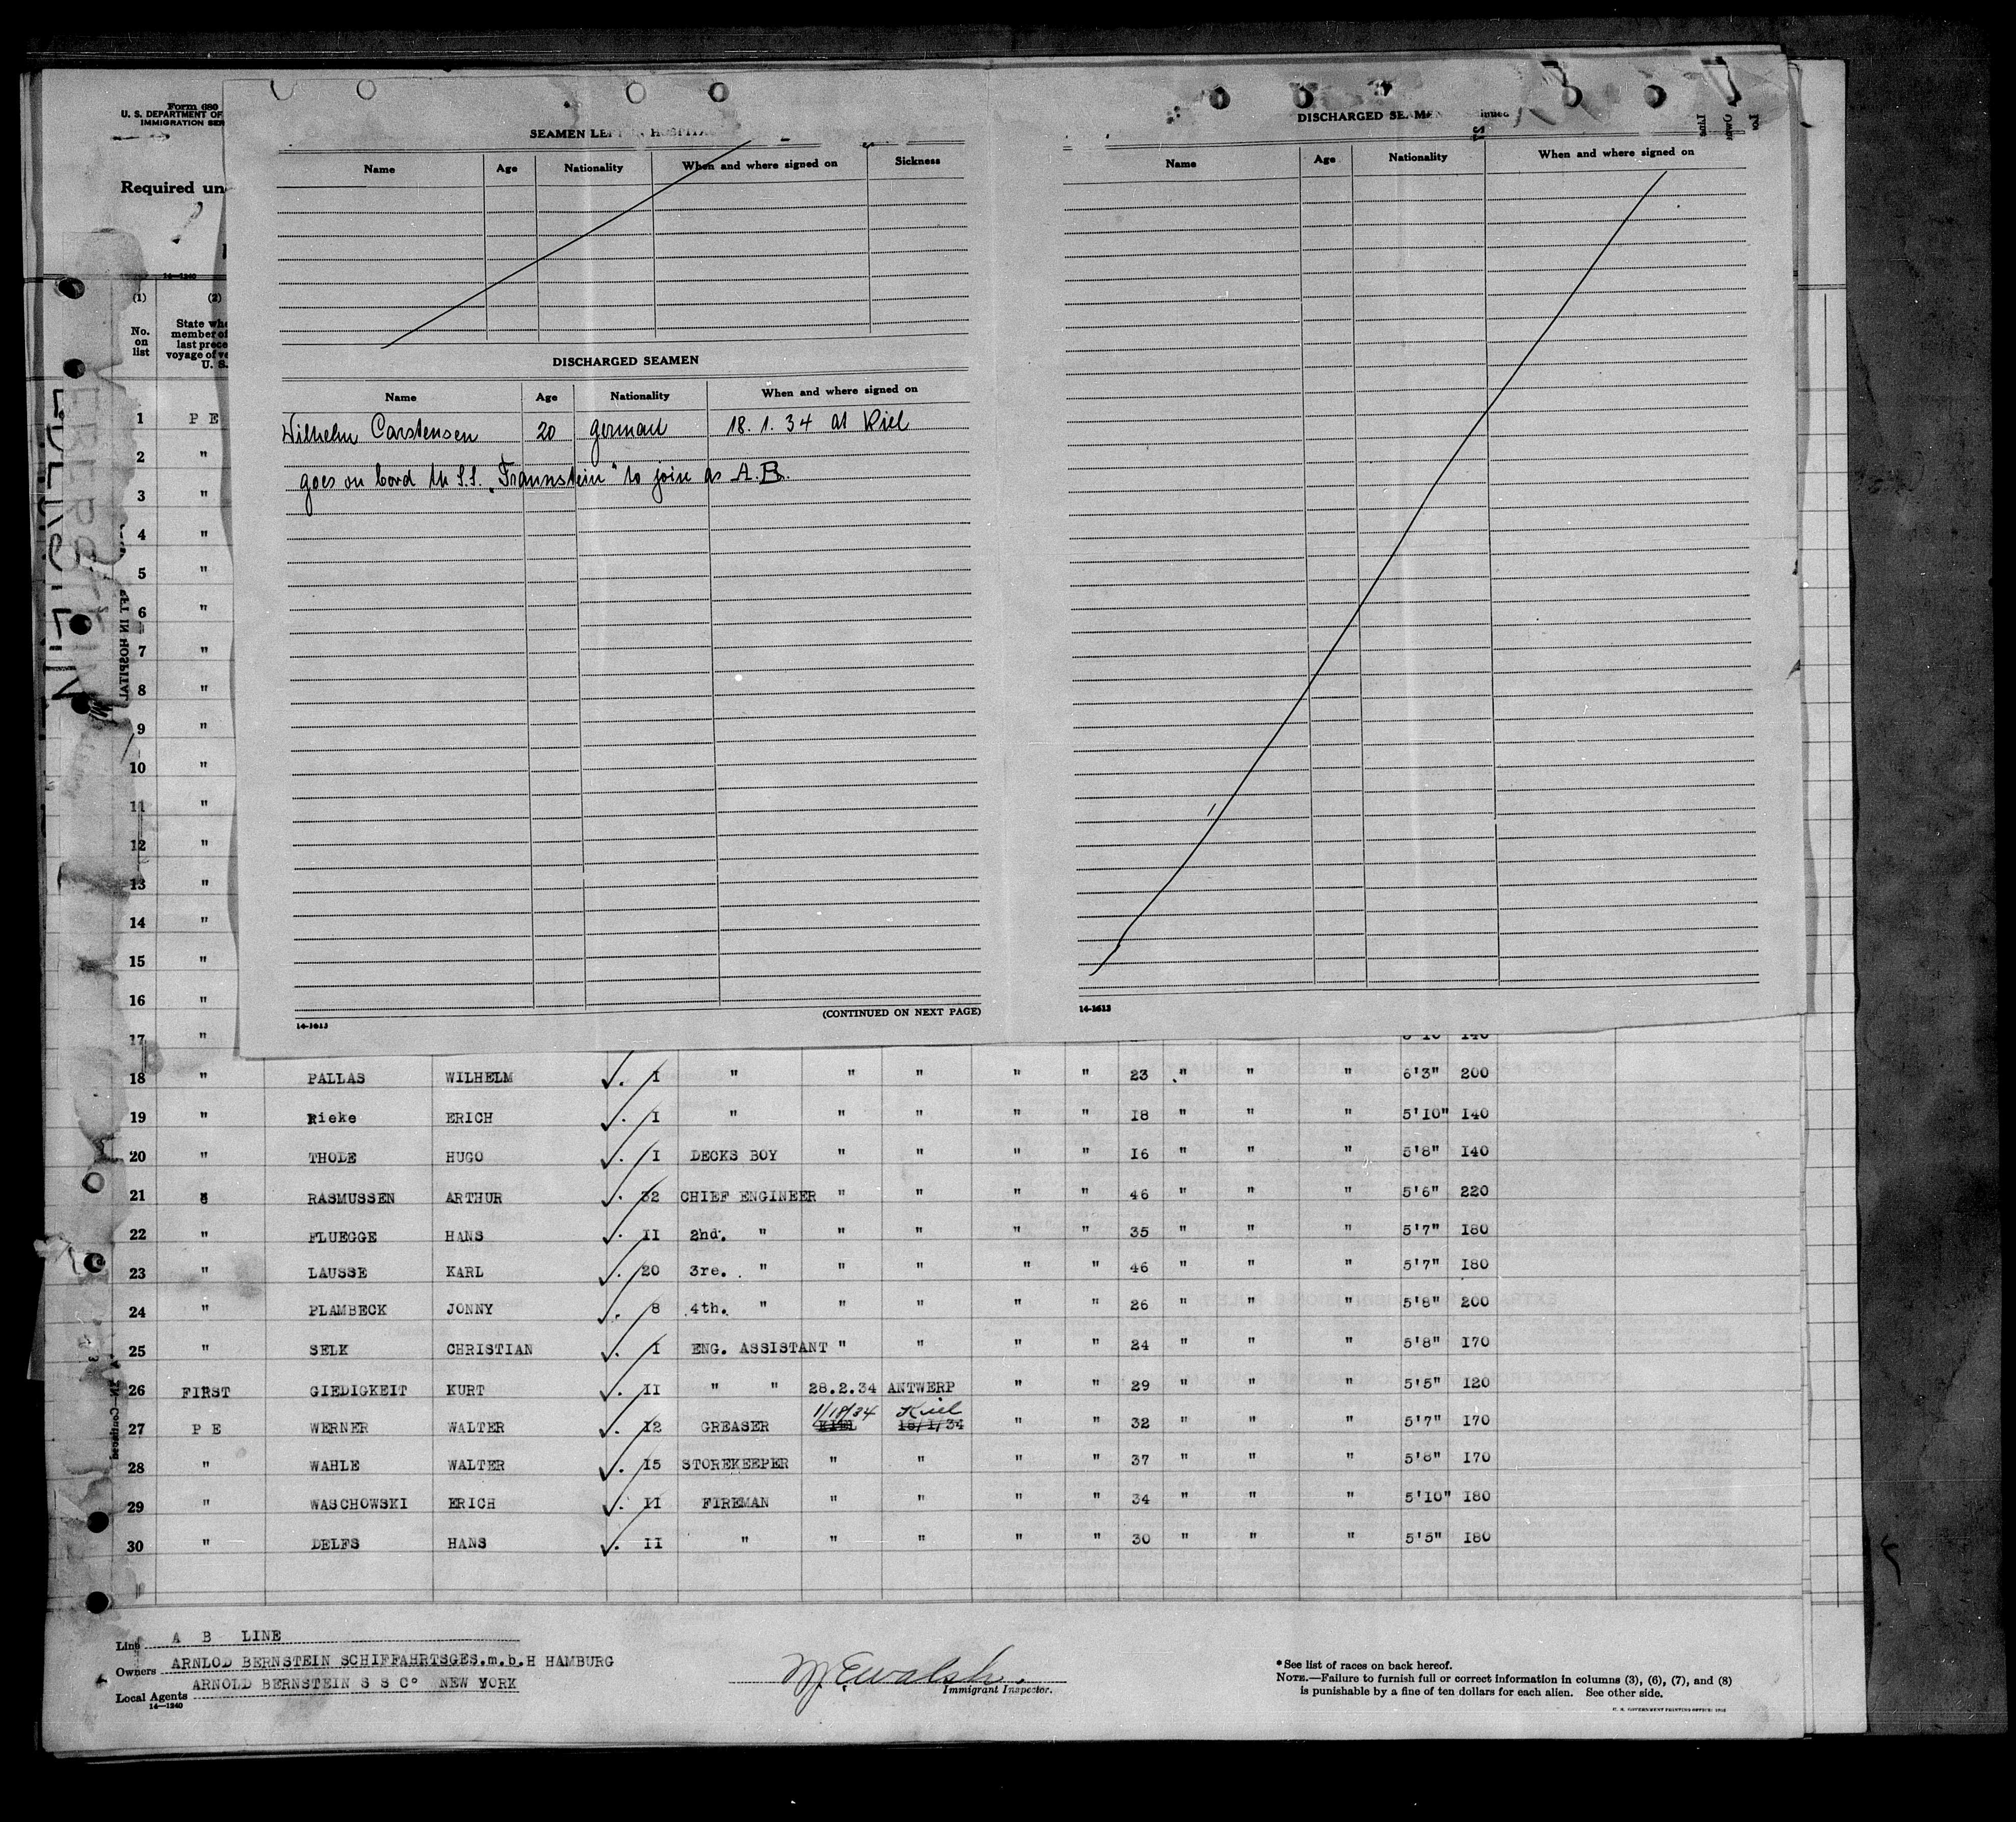 Form 680
U. S. DEPARTMENT OF
IMMIGRATION SER
Required un
14—1240
(1) (2)
No. on list
State whe
member of
last prece
voyage of ve
U. S.
1 P E
2 "
3 "
4 "
5 "
6 "
7 "
8 "
9 "
10 "
11 "
12 "
13 "
14 "
15 "
16 "
17 "
SEAMEN LEFT IN HOSPITA
Name Age Nationality When and where signed on Sickness
DISCHARGED SEAMEN
Name Age Nationality When and where signed on
Wilhelm Carstensen 20 german 18. 1. 34 at Kiel
goes on bord the S.S. „Traunstein" to join as A.B.
(CONTINUED ON NEXT PAGE)
14-1613
DISCHARGED SEAMEN
Name Age Nationality When and where signed on
14-1613
5'10 140
18 " PALLAS WILHELM ✓. I " " " " " 23 " " " 6'3" 200
19 " Rieke ERICH ✓. I " " " " " 18 " " " 5'10" I40
20 " THODE HUGO ✓. I DECKS BOY " " " " I6 " " " 5'8" I40
21 " RASMUSSEN ARTHUR ✓. 32 CHIEF ENGINEER " " " " 46 " " " 5'6" 220
22 " FLUEGGE HANS ✓. II 2nd. " " " " " 35 " " " 5'7" I80
23 " LAUSSE KARL ✓. 20 3re. " " " " " 46 " " " 5'7" I80
24 " PLAMBECK JONNY ✓. 8 4th. " " " " " 26 " " " 5'8" 200
25 " SELK CHRISTIAN ✓. I ENG. ASSISTANT " " " " 24 " " " 5'8" I70
26 FIRST GIEDIGKEIT KURT ✓. II " " 28.2.34 ANTWERP " " 29 " " " 5'5" I20
1/18/34 Kiel
27 P E WERNER WALTER ✓. I2 GREASER KIEL 18/1/34 " " 32 " " " 5'7" I70
28 " WAHLE WALTER ✓. I5 STOREKEEPER " " " " 37 " " " 5'8" I70
29 " WASCHOWSKI ERICH ✓. II FIREMAN " " " " 34 " " " 5'10" I80
30 " DELFS HANS ✓. II " " " " " 30 " " " 5'5" I80
Line A B LINE
Owners ARNLOD BERNSTEIN SCHIFFAHRTSGES.m.b.H HAMBURG
Local Agents ARNOLD BERNSTEIN S S Cº NEW YORK
14—1240
Immigrant Inspector.
*See list of races on back hereof.
NOTE.—Failure to furnish full or correct information in columns (3), (6), (7), and (8)
is punishable by a fine of ten dollars for each alien. See other side.